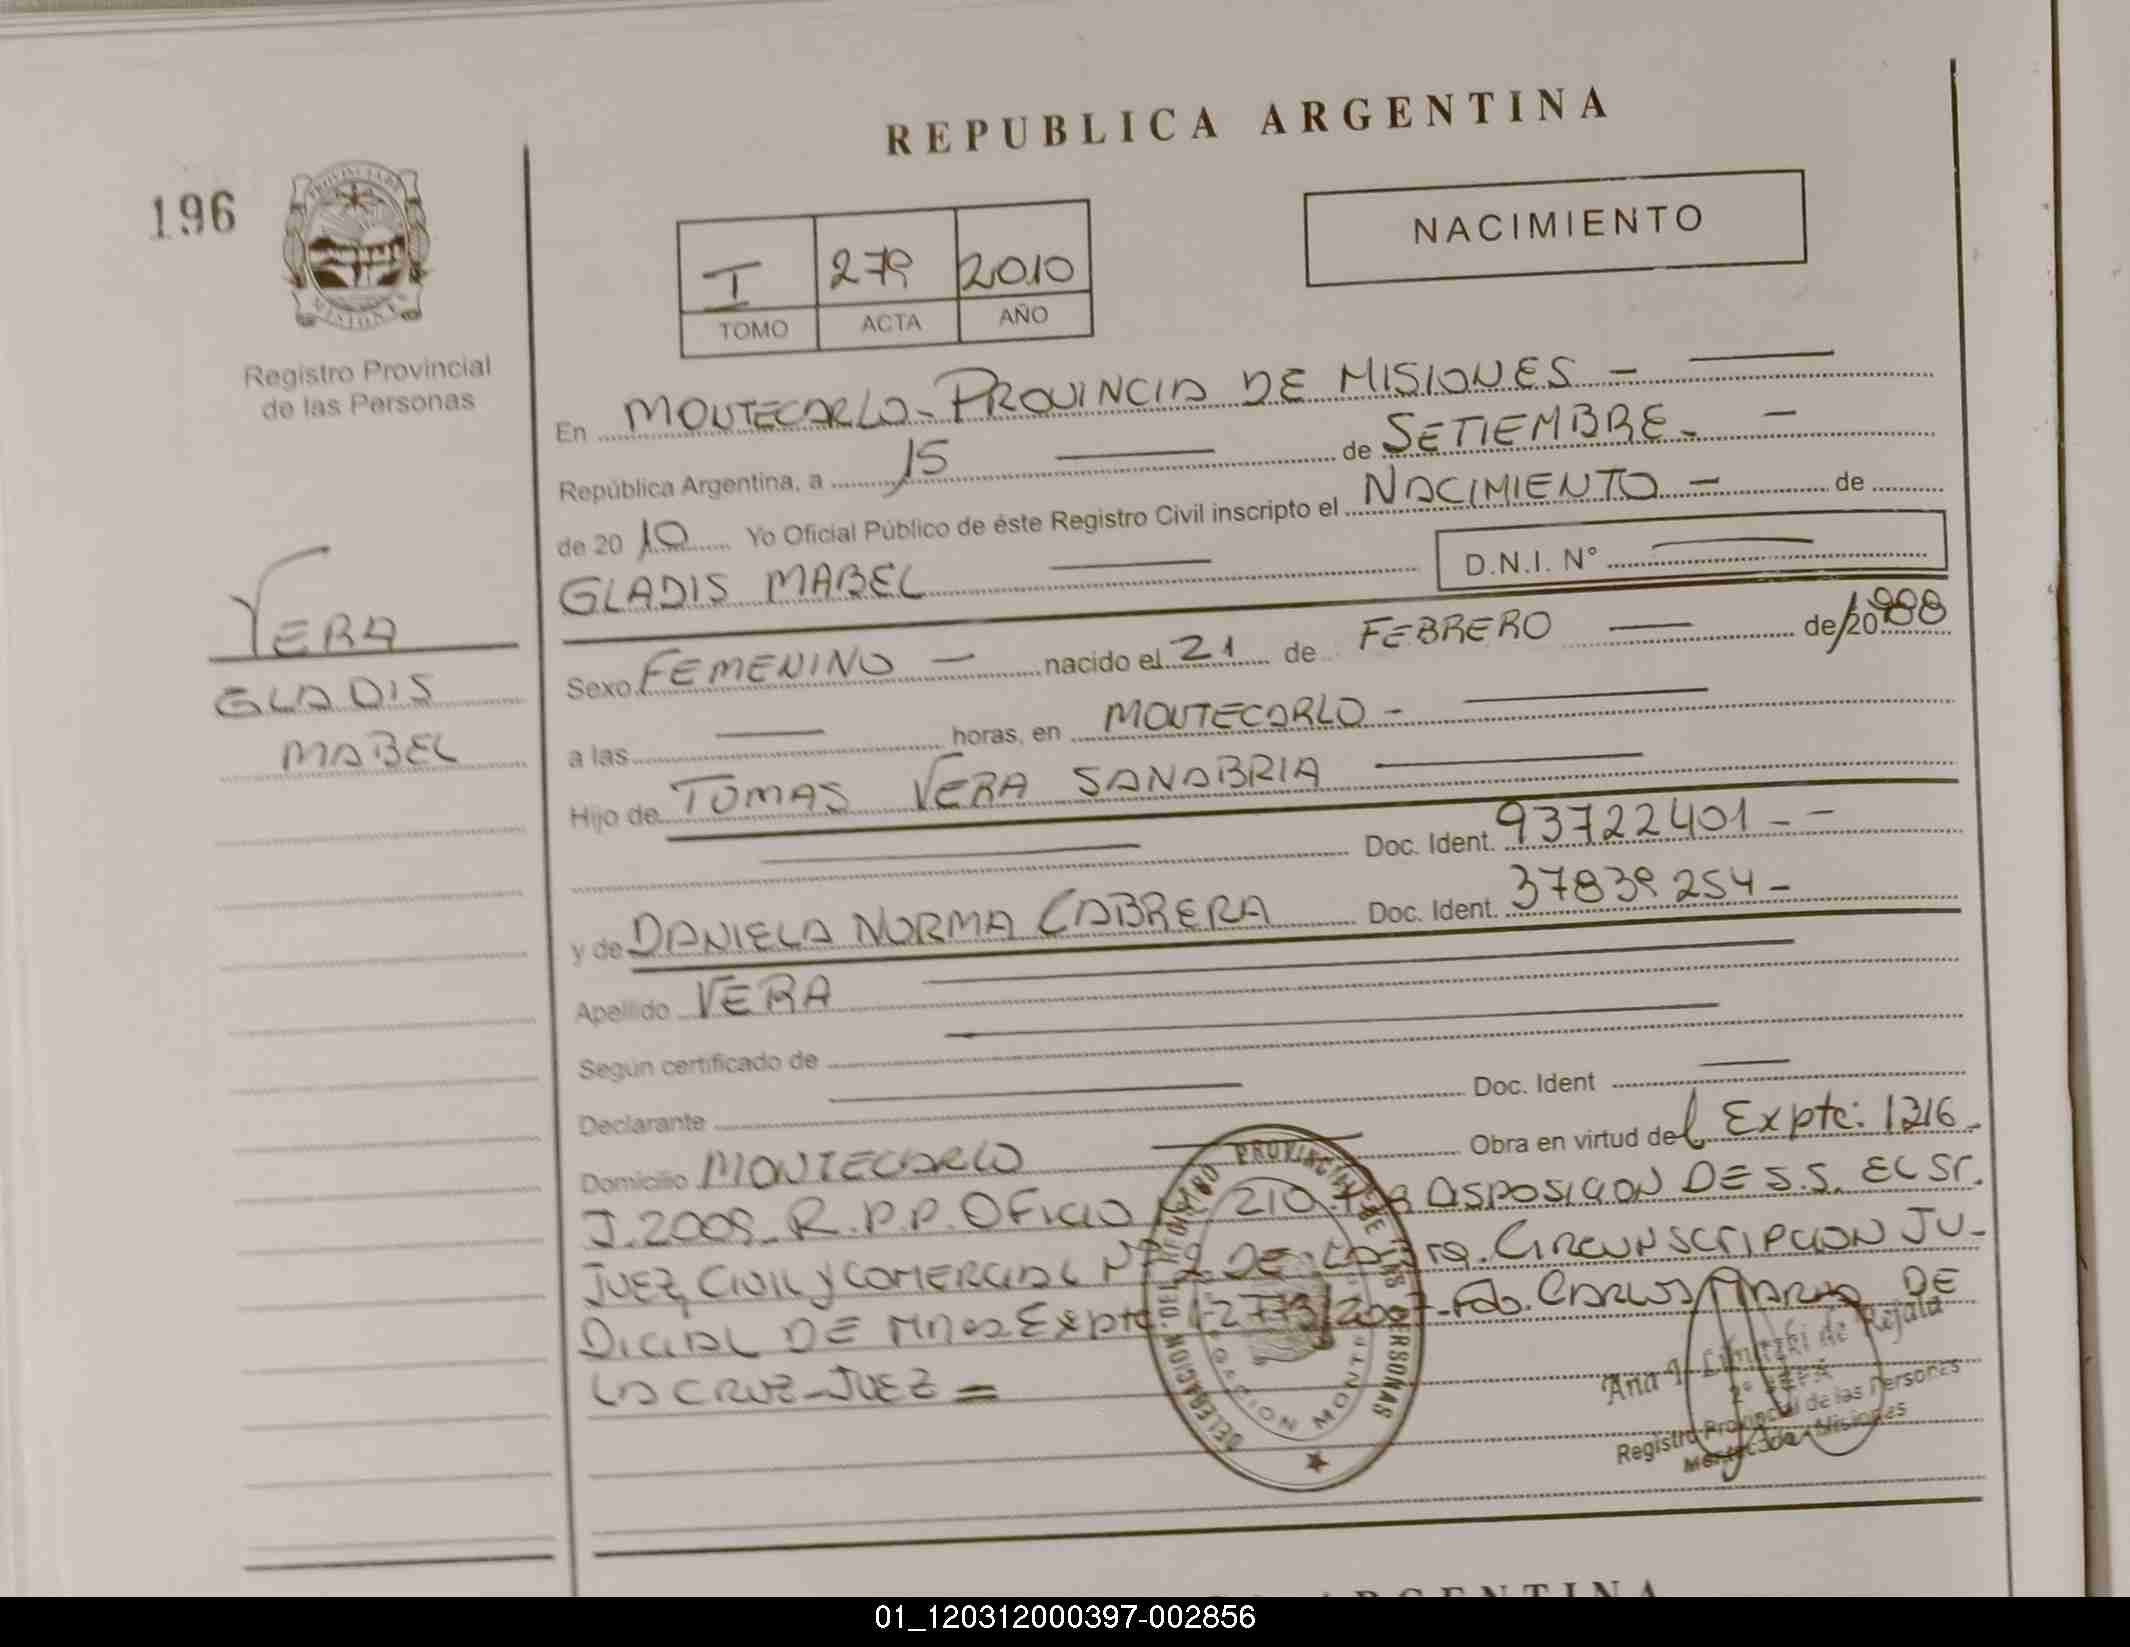 REPUBLICA ARGENTINA
196
NACIMIENTO
I 279 2010
TOMO ACTA AÑO
Registro Provincial
de las Personas
En MONTECARLO - PROVINCIA DE MISIONES -
República Argentina, a 15 de SETIEMBRE -
de 2010 Yo Oficial Público de éste Registro Civil inscripto el NACIMIENTO - de
GLADIS MABEL D.N.I. N°
VERA
GLADIS
MABEL
Sexo FEMENINO - nacido el 21 de FEBRERO de 1988
a las horas, en MONTECARLO -
Hijo de TOMAS VERA SANABRIA
Doc. Ident. 93722401 - -
y de DANIELA NORMA CABRERA Doc. Ident. 37839254 -
Apellido VERA
Según certificado de
Declarante Doc. Ident
Domicilio MONTECARLO Obra en virtud del Expte: 1216 -
J. 2009 - R.P.P. OFICIO 210 DISPOSICION DE S.S. EL Sr.
JUEZ, CIVIL y COMERCIAL Nº 2 DE CIRCUNSCRIPCION JU-
DICIAL DE Expte. 2773/2007 - Fdo. CARLOS MARIA DE
LA CRUZ - JUEZ =
REGISTRO PROVINCIAL DE LAS PERSONAS
DELEGACION
Ana de Rejala
Registro Provincial de las Personas
Montecarlo - Misiones
ARGENTINA
01_120312000397-002856